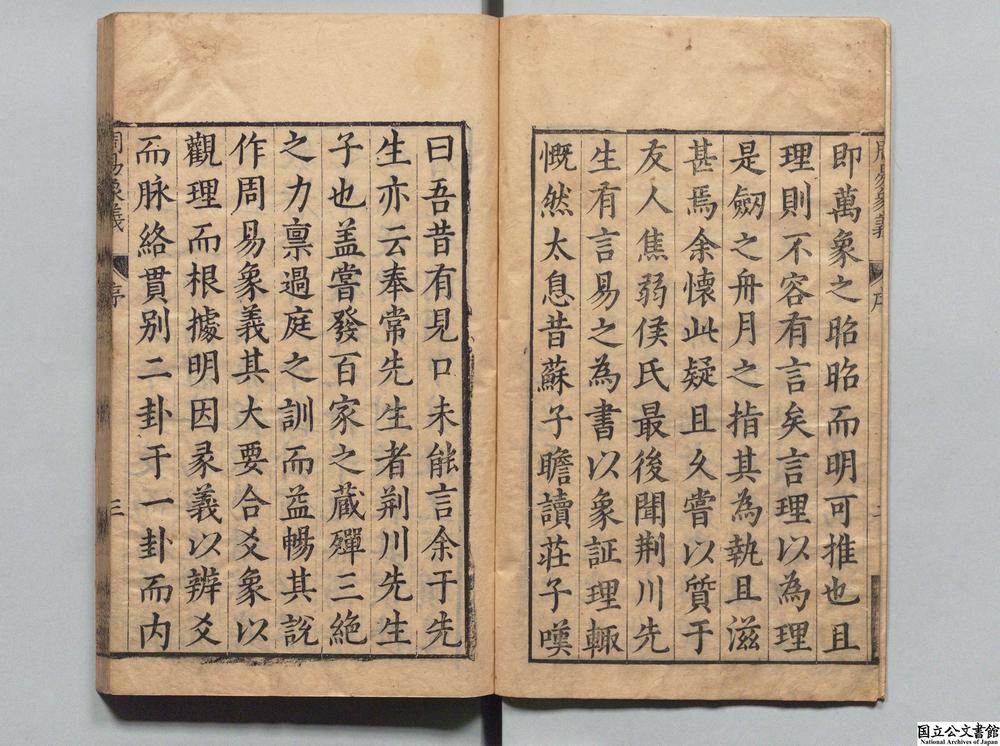 即萬象之昭昭而明可推也且
理則不容有言矣言理以為理
是劒之舟月之指其為執且滋
甚焉余懷此疑且久嘗以質于
友人焦弱侯氏最後聞荆川先
生有言易之為書以象証理輙
慨然太息昔蘇子瞻讀莊子嘆
曰吾昔有見口未能言余于先
生亦云奉常先生者荆川先生
子也盖嘗發百家之蔵殫三絶
之力禀過庭之訓而益暢其說
作周易象義其大要合爻象以
觀理而根據明因彖義以辨爻
而脉絡貫別二卦于一卦而内
周易象義
序
三
国立公文書館
National Archives of Japan